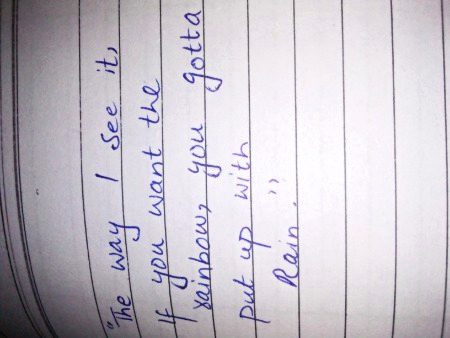 "The way I see it,
If you want the
rainbow, you gotta
put up with
Rain."